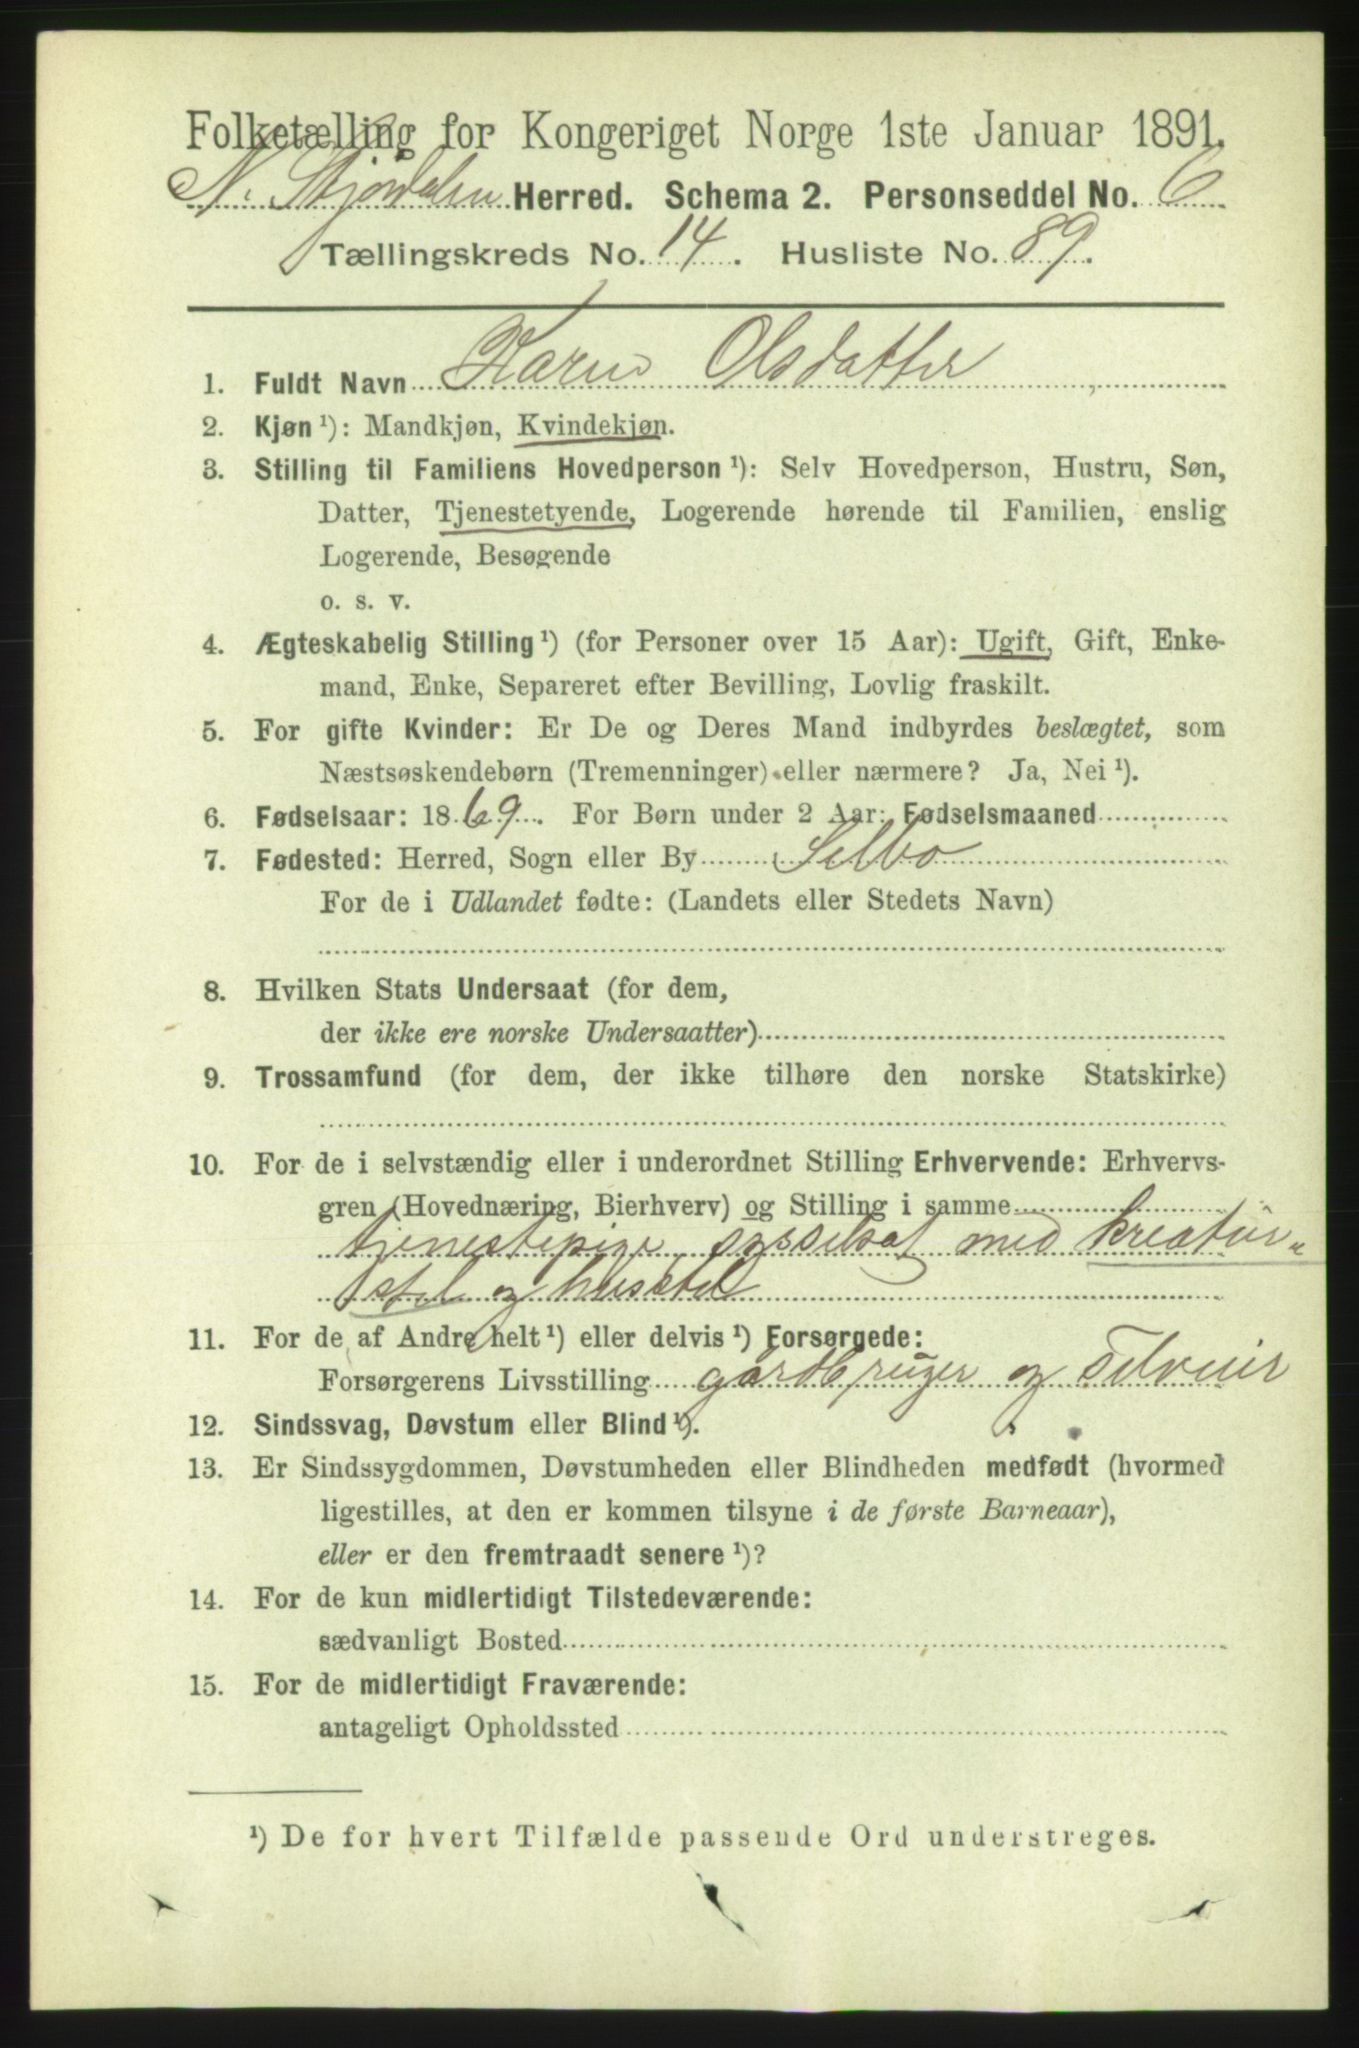 Folketælling for Kongeriget Norge 1ste Januar 1891.
N. Stjørdalen Herred. Schema 2. Personseddel No. 6
Tællingskreds No. 14. Husliste No. 89.
1. Fuldt Navn Karen Olsdatter
2. Kjøn ¹): Mandkjøn, Kvindekjøn.
3. Stilling til Familiens Hovedperson ¹): Selv Hovedperson, Hustru, Søn,
Datter, Tjenestetyende, Logerende hørende til Familien, enslig
Logerende, Besøgende
o. s. v.
4. Ægteskabelig Stilling ¹) (for Personer over 15 Aar): Ugift, Gift, Enke-
mand, Enke, Separeret efter Bevilling, Lovlig fraskilt.
5. For gifte Kvinder: Er De og Deres Mand indbyrdes beslægtet, som
Næstsøskendebørn (Tremenninger) eller nærmere? Ja, Nei ¹).
6. Fødselsaar: 1869. For Børn under 2 Aar: Fødselsmaaned
7. Fødested: Herred, Sogn eller By Selbo
For de i Udlandet fødte: (Landets eller Stedets Navn)
8. Hvilken Stats Undersaat (for dem,
der ikke ere norske Undersaatter)
9. Trossamfund (for dem, der ikke tilhøre den norske Statskirke)
10. For de i selvstændig eller i underordnet Stilling Erhvervende: Erhvervs-
gren (Hovednæring, Bierhverv) og Stilling i samme
tjenestepige sysselsat med kreatur-
stel og husstel
11. For de af Andre helt ¹) eller delvis ¹) Forsørgede:
Forsørgerens Livsstilling gårdbruger og
12. Sindssvag, Døvstum eller Blind ¹).
13. Er Sindssygdommen, Døvstumheden eller Blindheden medfødt (hvormed
ligestilles, at den er kommen tilsyne i de første Barneaar),
eller er den fremtraadt senere ¹)?
14. For de kun midlertidigt Tilstedeværende:
sædvanligt Bosted
15. For de midlertidigt Fraværende:
antageligt Opholdssted
¹) De for hvert Tilfælde passende Ord understreges.